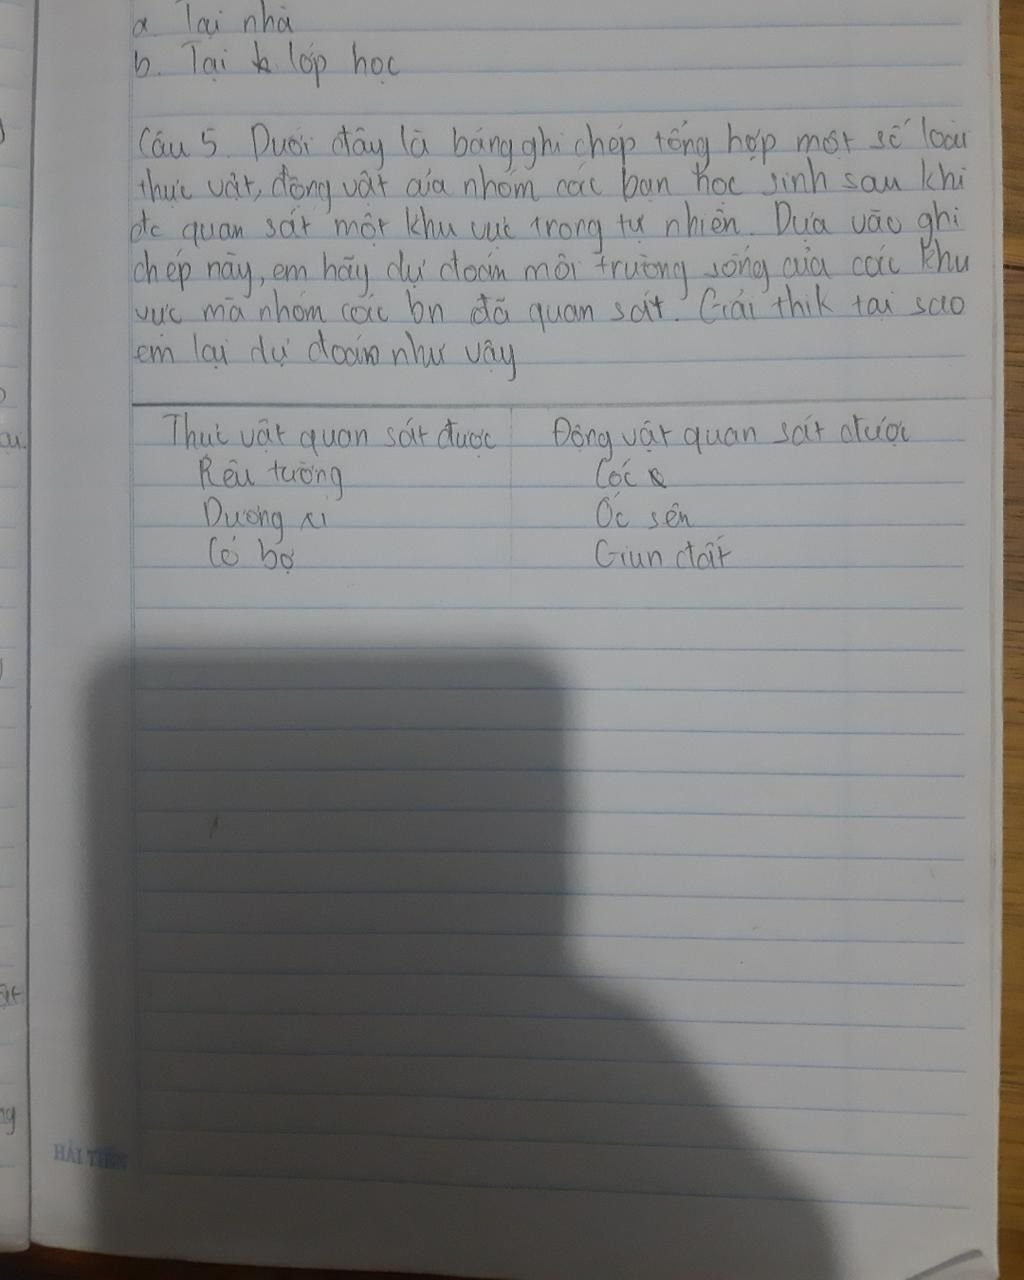 a. Tại nhà
b. Tại lớp học
Câu 5. Dưới đây là bảng ghi chép tổng hợp một số loài
thực vật, động vật của nhóm các bạn học sinh sau khi
đc quan sát một khu vực trong tự nhiên. Dựa vào ghi
chép này, em hãy dự đoán môi trường sống của các khu
vực mà nhóm các bn đã quan sát. Giải thik tại sao
em lại dự đoán như vậy
Thực vật quan sát được Động vật quan sát được
Rêu tường Cóc
Dương xỉ Ốc sên
Cỏ bợ Giun đất
HẢI TIẾN